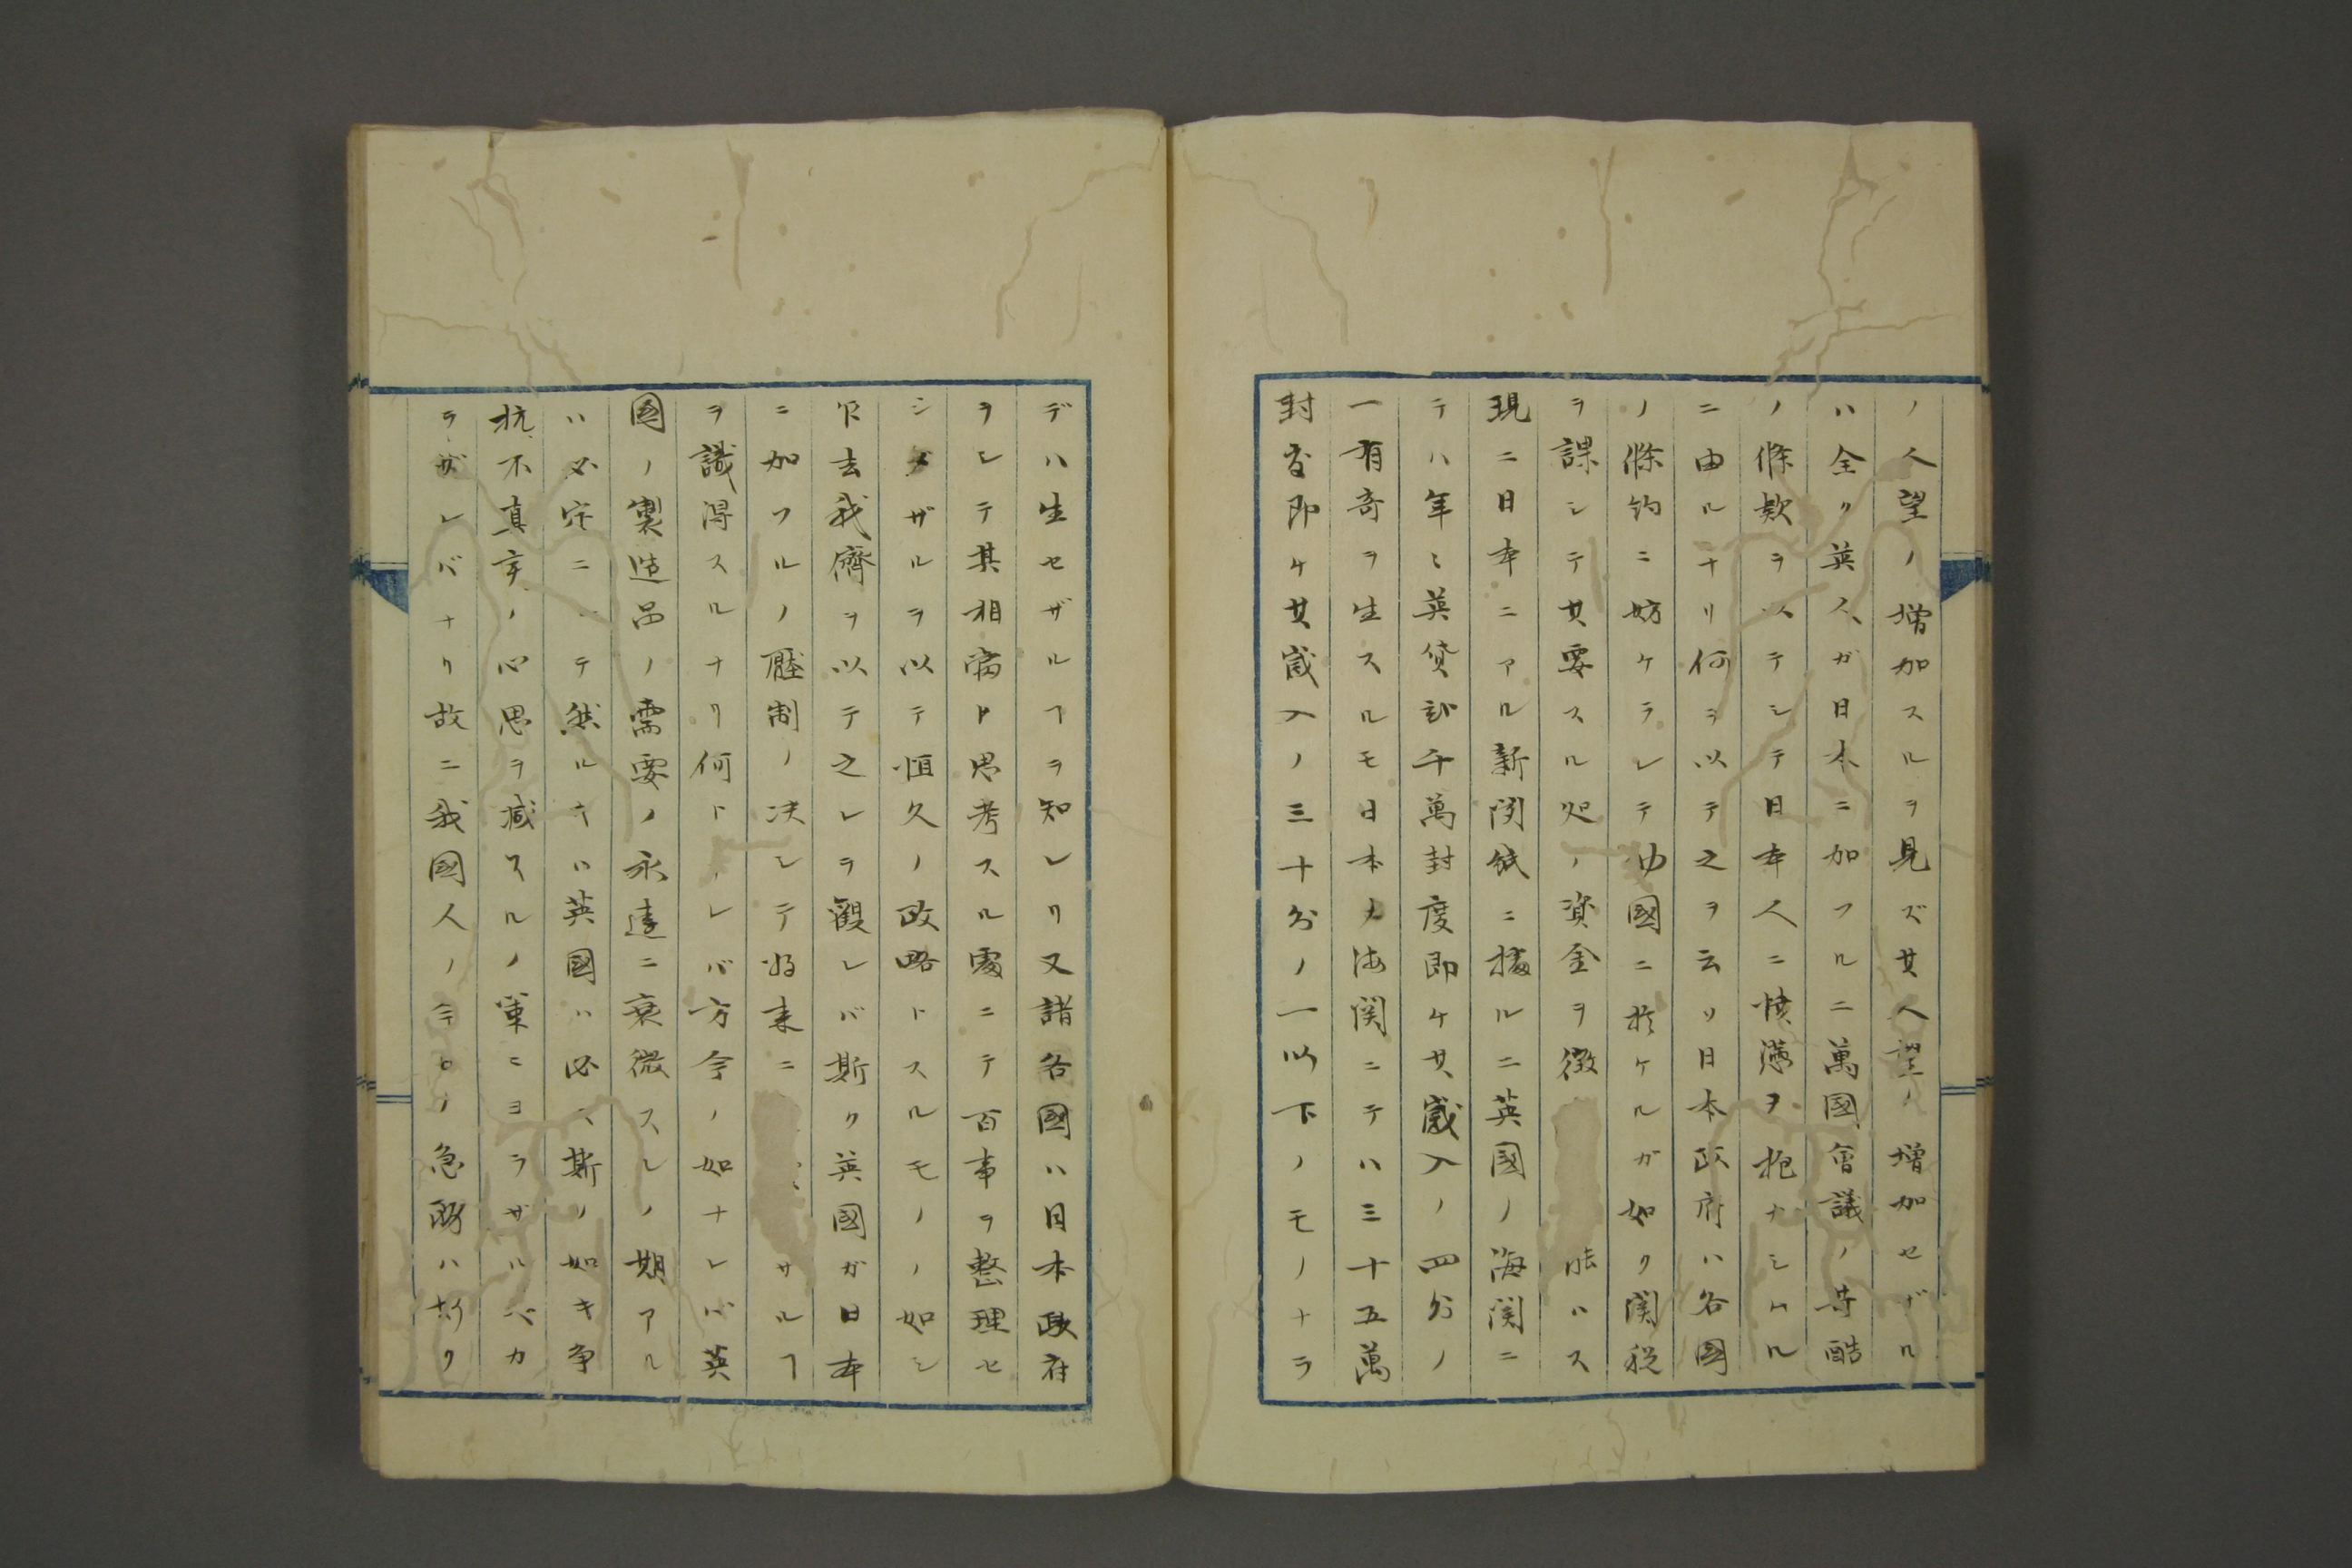 ノ人望ノ増加スルヲ見ズ其人望ノ増加セザル
ハ全ク英人ガ日本ニ加フルニ萬國會議ノ苛酷
ノ條款ヲ以テシテ日本人ニ憤懣ヲ抱カシムル
ニ由ルナリ何ヲ以テ之ヲ云フ日本政府ハ各國
ノ條約ニ妨ケラレテ他國ニ於ケルガ如ク関税
ヲ課シテ其要スル処ノ資金ヲ徴 能ハス
現ニ日本ニアル新聞紙ニ據ルニ英國ノ海関ニ
テハ年々英貨弐千萬封度即ケ其歳入ノ四分ノ
一有奇ヲ生スルモ日本ノ海関ニテハ三十五萬
封度即ケ其歳入ノ三十分ノ一以下ノモノナラ
デハ生セザルヿヲ知レリ又諸各國ハ日本政府
ヲシテ其相当ト思考スル處ニテ百事ヲ整理セ
シメザルヲ以テ恒久ノ政略トスルモノノ如シ
下去我儕ヲ以テ之レヲ觀レバ斯ク英國ガ日本
ニ加フルノ壓制ノ决シテ好末ニ サルヿ
ヲ識得スルナリ何トナレバ方今ノ如ナレバ英
國ノ製造品ノ需要ノ永遠ニ衰微スルノ期アル
ハ必定ニ テ然ルキハ英國ハ必ス斯ノ如キ争
抗不真実ノ心思ヲ減スルノ策ニヨラザルベカ
ラザレバナリ故ニ我國人ノ 急務ハ斯ク